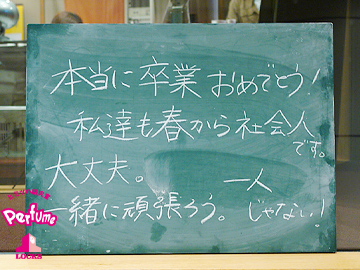 本当に卒業おめでとう!
私達も春から社会人です。
大丈夫。一人じゃない!
一緒に頑張ろう。
Perfume
LOCKS